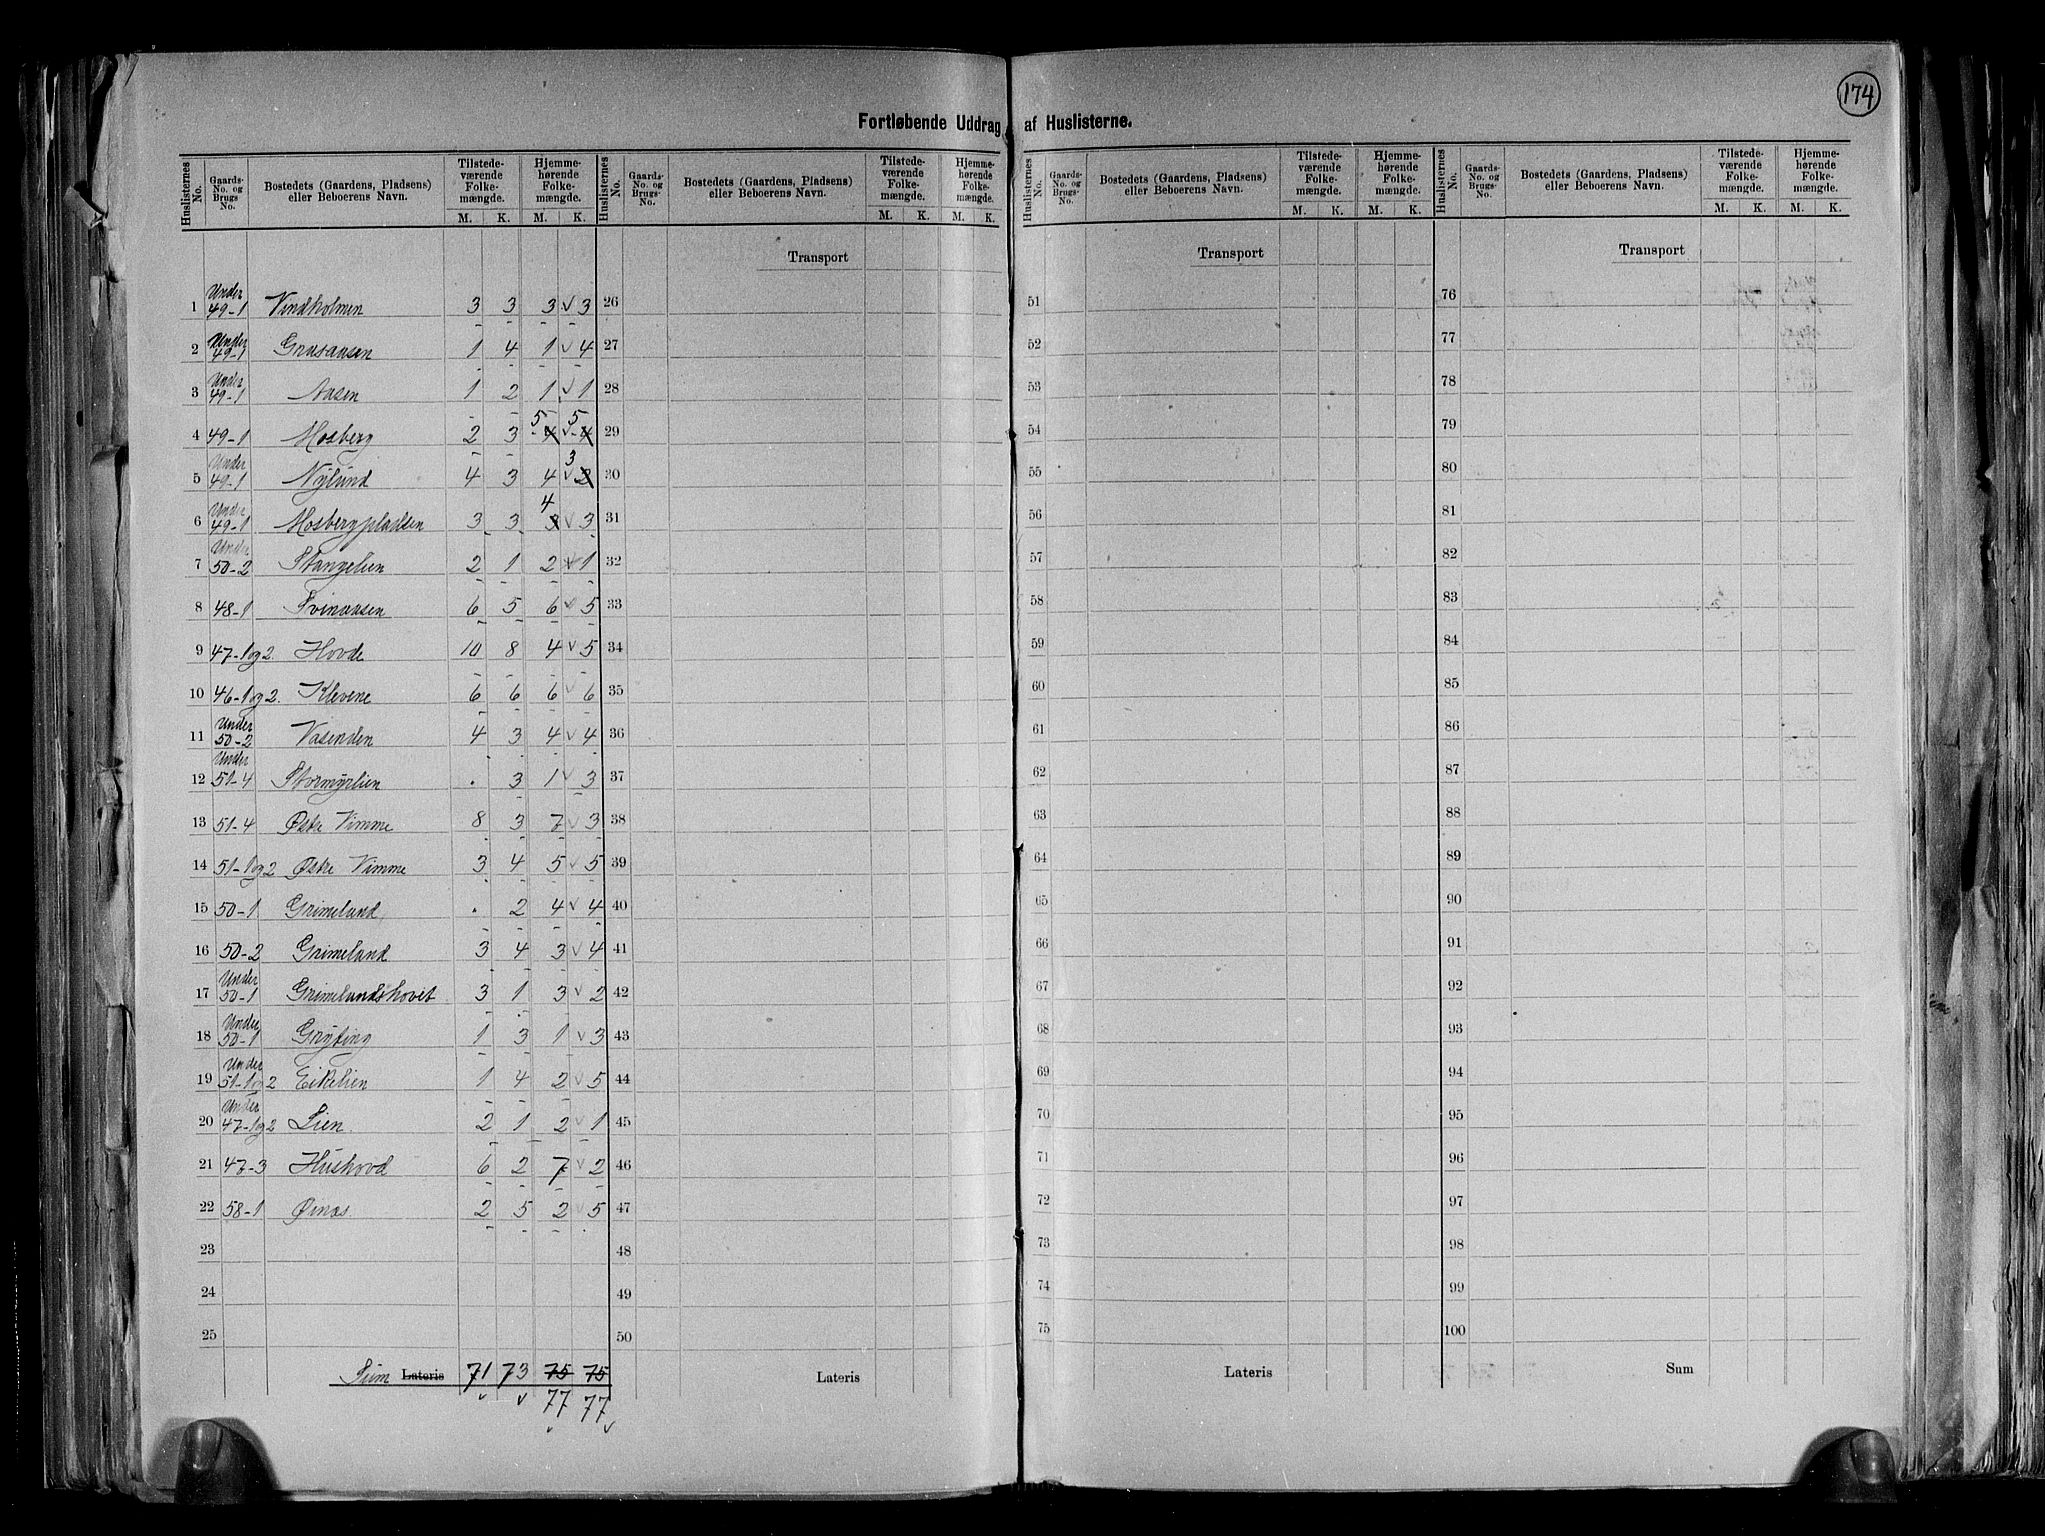 174
Fortløbende Uddrag af Huslisterne.
Huslisternes No. Gaards-No. og Brugs-No. Bostedets (Gaardens, Pladsens) eller Beboerens Navn. Tilstedeværende Folkemængde. M. K. Hjemmehørende Folkemængde. M. K.
Huslisternes No. Gaards-No. og Brugs-No. Bostedets (Gaardens, Pladsens) eller Beboerens Navn. Tilstedeværende Folkemængde. M. K. Hjemmehørende Folkemængde. M. K.
Huslisternes No. Gaards-No. og Brugs-No. Bostedets (Gaardens, Pladsens) eller Beboerens Navn. Tilstedeværende Folkemængde. M. K. Hjemmehørende Folkemængde. M. K.
Huslisternes No. Gaards-No. og Brugs-No. Bostedets (Gaardens, Pladsens) eller Beboerens Navn. Tilstedeværende Folkemængde. M. K. Hjemmehørende Folkemængde. M. K.
Transport Transport Transport
1 Under 49-1 Vindholmen 3 3 3 √ 3 26 51 76
2 Under 49-1 Grasaasen 1 4 1 √ 4 27 52 77
3 Under 49-1 Aasen 1 2 1 √ 1 28 53 78
4 49-1 Mosberg 2 3 5 4 √ 5 4 29 54 79
5 Under 49-1 Nylund 4 3 4 √ 3 2 30 55 80
6 Under 49-1 Mosbergpladsen 3 3 4 3 √ 3 31 56 81
7 Under 50-2 Stangelien 2 1 2 √ 1 32 57 82
8 48-1 Svinaasen 6 5 6 √ 5 33 58 83
9 47-1og2. Hovde 10 8 4 √ 5 34 59 84
10 46-1og2. Klevene 6 6 6 √ 6 35 60 85
11 Under 50-2 Vasenden 4 3 4 √ 4 36 61 86
12 Under 51-4 Stormyrlien . 3 1 √ 3 37 62 87
13 51-4 Østre Vimme 8 3 7 √ 3 38 63 88
14 51-1og2 Østre Vimme 3 4 5 √ 5 39 64 89
15 50-1 Grimeland . 2 4 √ 4 40 65 90
16 50-2 Grimeland 3 4 3 √ 4 41 66 91
17 Under 50-1 Grimelandshovet 3 1 3 √ 2 42 67 92
18 Under 50-1 Gryting 1 3 1 √ 3 43 68 93
19 Under 51-1og2 Eikelien 1 4 2 √ 5 44 69 94
20 Under 47-1og2 Lien. 2 1 2 √ 1 45 70 95
21 47-3 Hushovd 6 2 7 √ 2 46 71 96
22 58-1 Øinæs. 2 5 2 √ 5 47 72 97
23 48 73 98
24 49 74 99
25 50 75 100
Sum Lateris 71 73 75 75 Lateris Lateris Sum
√ √ 77 77
√ √